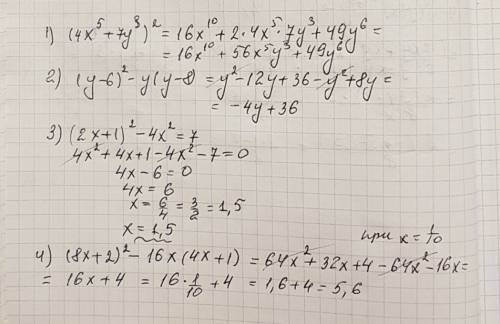 1) (4x⁵+7y³)² = 16x¹⁰+2·4x⁵·7y³+49y⁶=
= 16x¹⁰+56x⁵y³+49y⁶
2) (y-6)²-y(y-8) = y²-12y+36-y²+8y=
= -4y+36
3) (2x+1)²-4x²=7
4x²+4x+1-4x²-7=0
4x-6=0
4x=6
x=6/4=3/2=1,5
x=1,5
при x=1/10
4) (8x+2)²-16x(4x+1) = 64x²+32x+4-64x²-16x=
= 16x+4 = 16·1/10+4 = 1,6+4=5,6